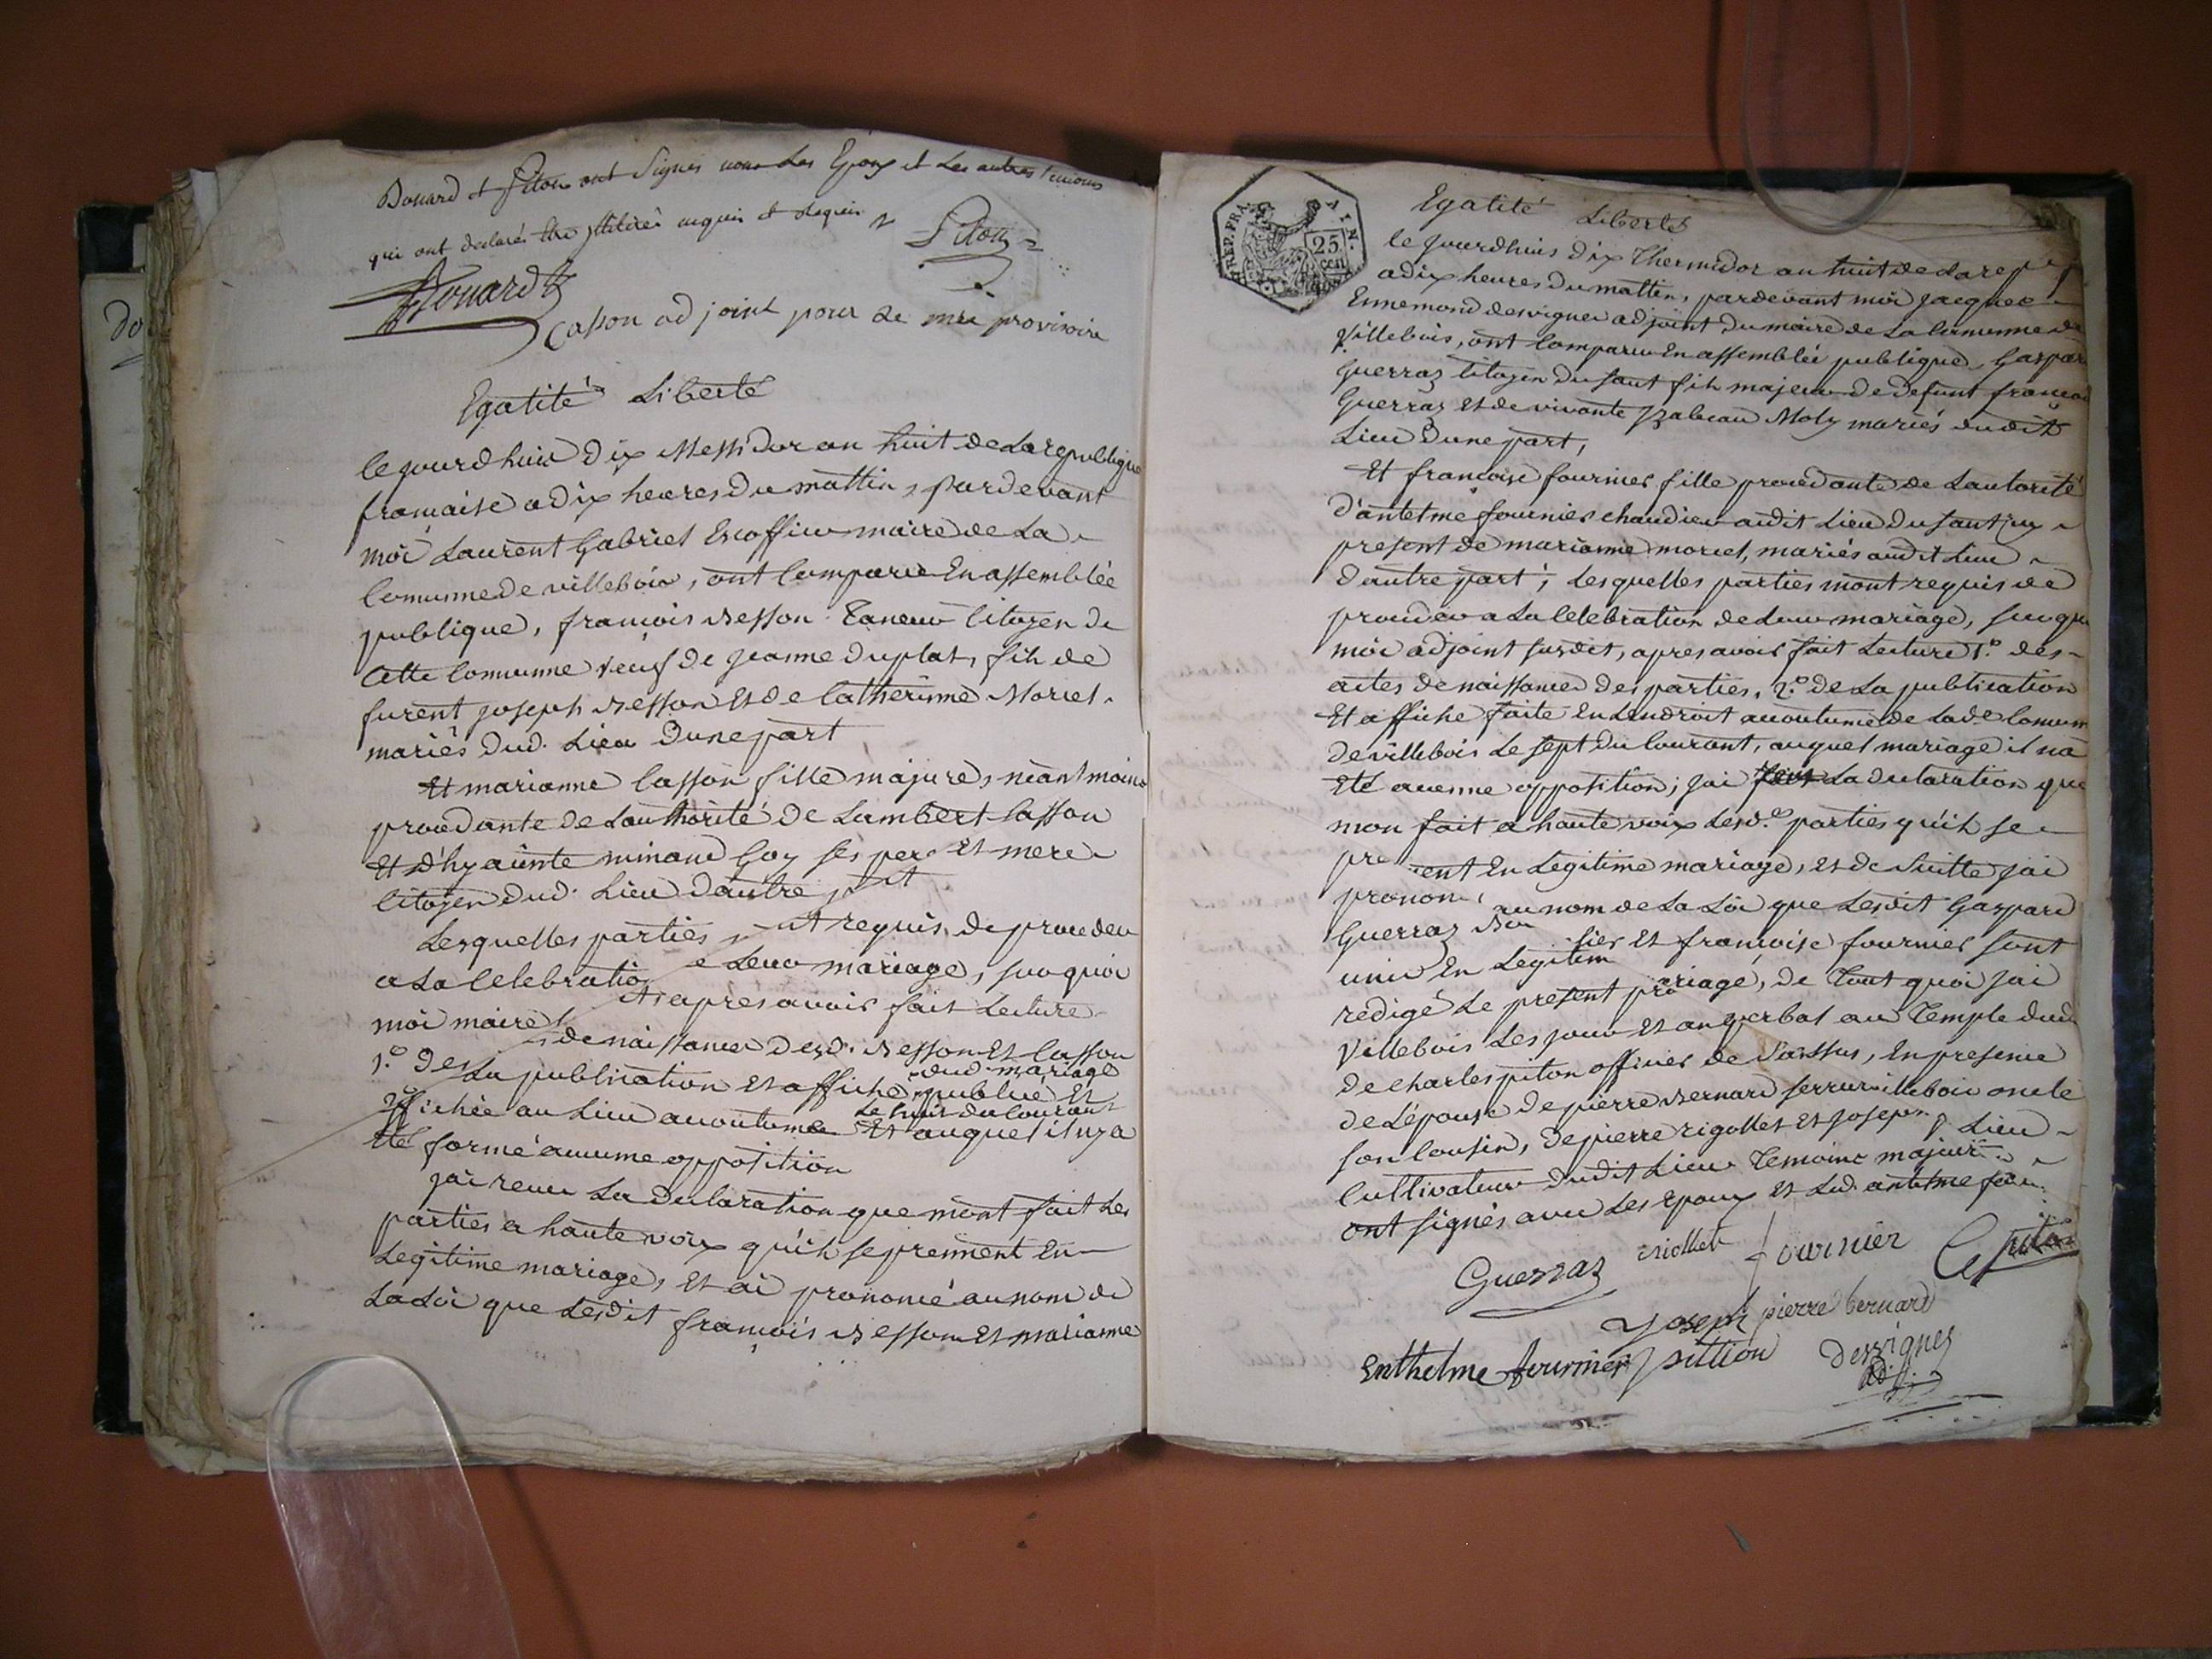 Douard et Piton ont Signés non Les Epoux et Les autres temoins
qui ont declarés être illitérés enquis et requis
Piton
Douard
Casson adjoint pour Le mre provisoire
Egatité Liberté
le jourd huis Dix Messidor an huit de La republique
francaise a dix heures du mattin, pardevant
moi Laurent Gabriel Escoffier maire de La
Commune de villebois, ont Comparu En assemblée
publique, francois Besson Taneur Citoyen de
Cette Commune veuf de Jeanne Duplat, fils de
furent joseph Besson Et de Catherinne Morel
mariés dud. Lieu Dune part
Et marianne Casson fille majure, néant moins
procedante de Lauthorité de Lambert Casson
Et d'hyacinte minand Goy ses per Et mere
Citoyen dud. Lieu Dautre part
Lesquelles parties ont requis de proceder
a La Celebration de Leur mariage, sur quoi
moi maire apres avoir fait Lecture
1.º Des de naissance desd. Besson Et Casson
2º La publication Et affiche dud. mariage publié Et
affichée au Lieu accoutumé Le huit du Courant Et auquel il ny a
Eté formé aucune opposition
jai recu La Declaration que mont fait Les
parties a haute voix quils se prennent En
Legitime mariage, Et ai prononcé au nom de
La Loi que Lesdit francois Besson Et marianne
REP. FRA.
AIN.
25 cen
Egatité Liberté
le jourdhuis dix Thermidor an huit de La rep
a dix heures du mattin, pardevant moi jacques
Ennemond desvignes adjoint du maire de La Commune de
Villebois, ont Comparu En assemblée publique, Gaspar
Guerraz Citoyen du Saut fils majeur de Defunt francoi
Guerraz Et de vivante Yzabeau Moly mariés dudit
Lieu Dune part,
Et francoise fournier fille procedante de Lautorité
D'antelme fournier chaudier audit Lieu du Saut icy
present de marianne morel, mariés audit Lieu
Dautre part; Lesquelles parties mont requis de
proceder a La Celebration de Leur mariage, sur quoi
moi adjoint susdit, apres avoir fait Lecture 1.º des
actes de naissance des parties, 2.º de La publication
Et affiche faite En Lendroit accoutumé de Lade Commun
de villebois Le sept du Courant, auquel mariage il na
Eté aucune opposition; jai La declaration que
mon fait a haute voix Lesd.es parties quils se
prennent En Legitime mariage, Et de Suitte jai
prononcé au nom de La Loi que Lesdit Gaspard
Guerraz Et francoise fournier sont
unis En Legitime mariage, de Tout quoi jai
redigé Le present proverbal au Temple dud
Villebois Les jour Et an de Dessus, En presence
de charles piton officier de Villebois oncle
de L'épouse De pierre Bernard serrurier Lieu
son Cousin, de pierre rigollet Et joseph
Cultivateur dudit Lieu Temoins majeur
ont signés avec Les Epoux Et Led. antelme four
Guerraz fournier C piton
Joseph pierre bernard
Enthelme fournier pittion Desvignes
adj.